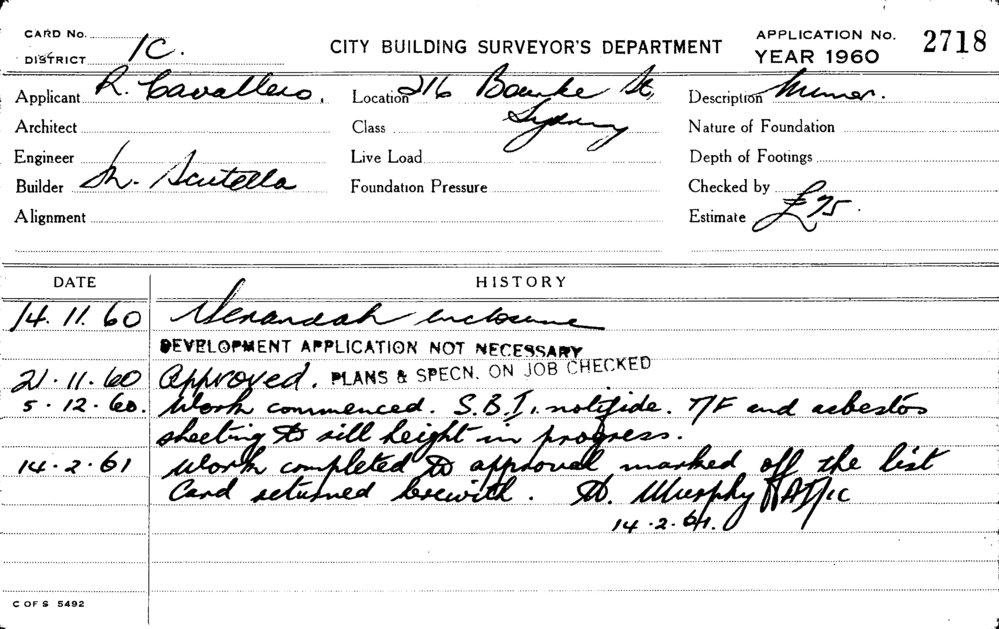 CARD No.
DISTRICT 1C.
CITY BUILDING SURVEYOR'S DEPARTMENT
APPLICATION No. 2718
YEAR 1960
Applicant R. Cavallero.
Location 216 Bourke St,
Sydney
Description Minor.
Architect
Class
Nature of Foundation
Engineer
Live Load
Depth of Footings
Builder M. Scutella
Foundation Pressure
Checked by
Alignment
Estimate £75.
DATE HISTORY
14.11.60 Verandah enclosure
DEVELOPMENT APPLICATION NOT NECESSARY
21.11.60 Approved. PLANS & SPECN. ON JOB CHECKED
5.12.60. Work commenced. S.B.I. notifide. T/F and asbestos
sheeting to sill height in progress.
14.2.61 Work completed to approval marked off the list
Card returned herewith. Murphy
14.2.61.
C OF S 5492